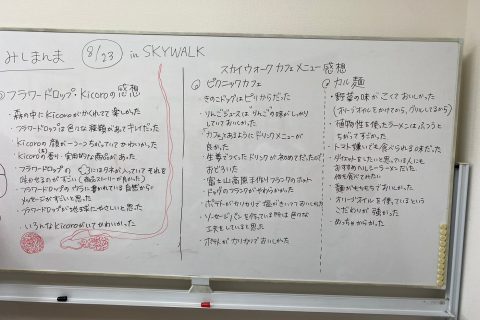 みしまんま 8/23 in SKYWALK
フラワードロップ・Kicoroの感想
森の中にKicoroがかくれてて楽しかった
・フラワードロップは色んな種類があてキレイだった
Kicoroの顔が一つ一つちがくてかわいかった
Kicoroの香り・実用的な商品があった
・フラワードロップの
フラワードロップのウラに書かれている自然から
メッセージがすごいと思った
・フラワードロップが地球にやさしいと思った
・いろんなKicoroがいてかわいかった
スカイウォークカフェメニュー感想
ピクニックカフェ
きのこドッグはピリからだった
・りんごジュースはりんごの味がしっかり
していておいしかった
・カフェとあるようにドリンクメニューが
良かった
・生姜をつくったドリンクが初めてだったが
おどろいた
・富士山高原豚を作りフランクのホット
ドッグのフランクがやわらかかった
・ポテトがカリカリで塩がきいておいしかった
・ソーセージパンを作っている時は色々な
工夫をしていると思った
・ポテトがカリカリでおいしかった
カル麺
・野菜の味がこくておいしかった
(オリーブオイルをかけてから、グリルしてるから)
・植物性を使ったラーメンはふつうと
ちがってすごかった
・トマト嫌いでも食べられる味だった
・ダイエットをしたいと思っている人にも
おすすめヘルシーラーメンだった。
何回も食べてみたい
・麺がもちもちでおいしかった
・オリーブオイルを使っているという
こだわりが強かった
・めっちゃからかった